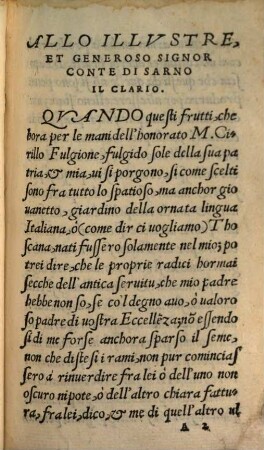 ALLO ILLVSTRE,
ET GENEROSO SIGNOR
CONTE DI SARNO
IL CLARIO.
QVANDO questi frutti, che
hora per le mani dell'honorato M. Ci-
rillo Fulgione, fulgido sole della sua pa
tria, & mia, ui si porgono, si come scelti
sono fra tutto lo spatioso, ma anchor gio
uanetto, giardino della ornata lingua
Italiana, ò (come dir ci uogliamo) Tho
scana, nati fussero solamente nel mio; po
trei dire, che le proprie radici hormai
secche dell'antica seruitu, che mio padre
hebbe non so, se co'l degno auo, ò ualoro
so padre di uostra Eccellẽza; nõ essendo
si di me forse anchora sparso il seme,
non che distesi i rami, non pur comincias
sero à rinuerdire fra lei ò dell'uno non
oscuro nipote, ò dell'altro chiara fattu
ra, fra lei, dico, & me di quell'altro ul
A 2